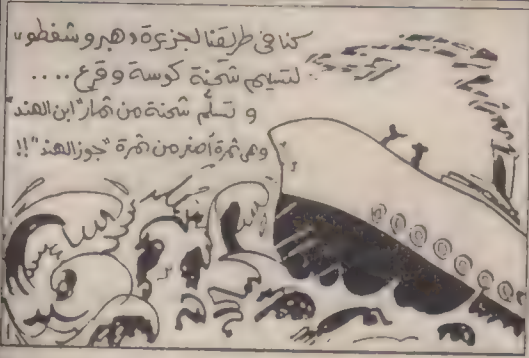 كنا فى طريقنا لجزيرة «هبر وشفطو»
لتسليم شحنة كوسة وقرع ....
و تسلّم شحنة من ثمار "ابن الهند"
وهى ثمرة أصغر من ثمرة "جوز الهند" !!